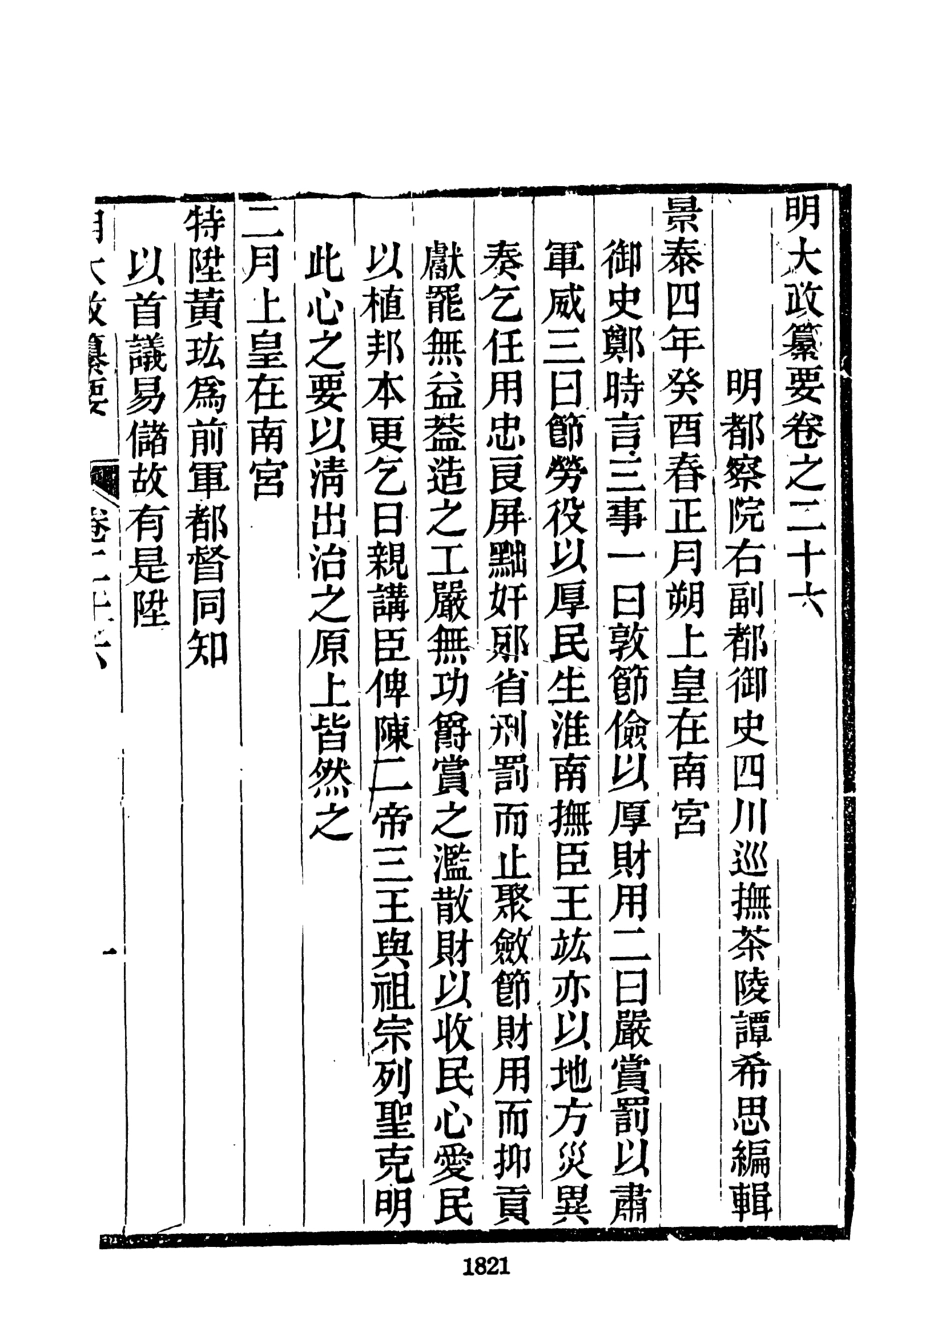 明大政纂要卷之二十六
明都察院右副都御史四川巡撫茶陵譚希思編輯
景泰四年癸酉春正月朔上皇在南宮
御史鄭時言三事一曰敦節儉以厚財用二曰嚴賞罰以肅
軍威三曰節勞役以厚民生淮南撫臣王竑亦以地方災異
奏乞任用忠良屏黜奸邪省刑罰而止聚斂節財用而抑貢
獻罷無益葢造之工嚴無功爵賞之濫散財以收民心愛民
以植邦本更乞日親講臣俾陳二帝三王與祖宗列聖克明
此心之要以淸出治之原上皆然之
二月上皇在南宮
特陞黃玹爲前軍都督同知
以首議易儲故有是陞
明大政纂要 卷二十六 一
1821